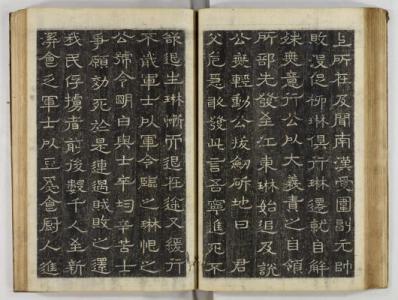 上所在及聞南漢受圍副元帥
敗沒促柳琳俱行琳遷就自解
殊無意行公以大義責之自領
所部先發至江東琳始追及說
公無輕動公拔劒斫地曰君
父危急敢發此言吾寧進死不
欲退生琳慚而退在途又緩行
不戢軍士以軍令臨之琳愧之
公號令明白與士卒均辛苦士
爭願効死於是連遇賊敗之還
我民俘擄者前後數千人至新
溪食乏軍士以豆爲食廚人進